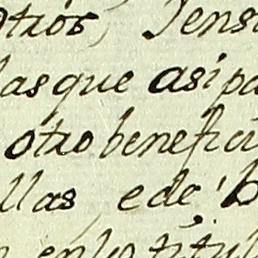 otros, Tens
las que asi pa
otro benefici
llas, ede' b
en los titul